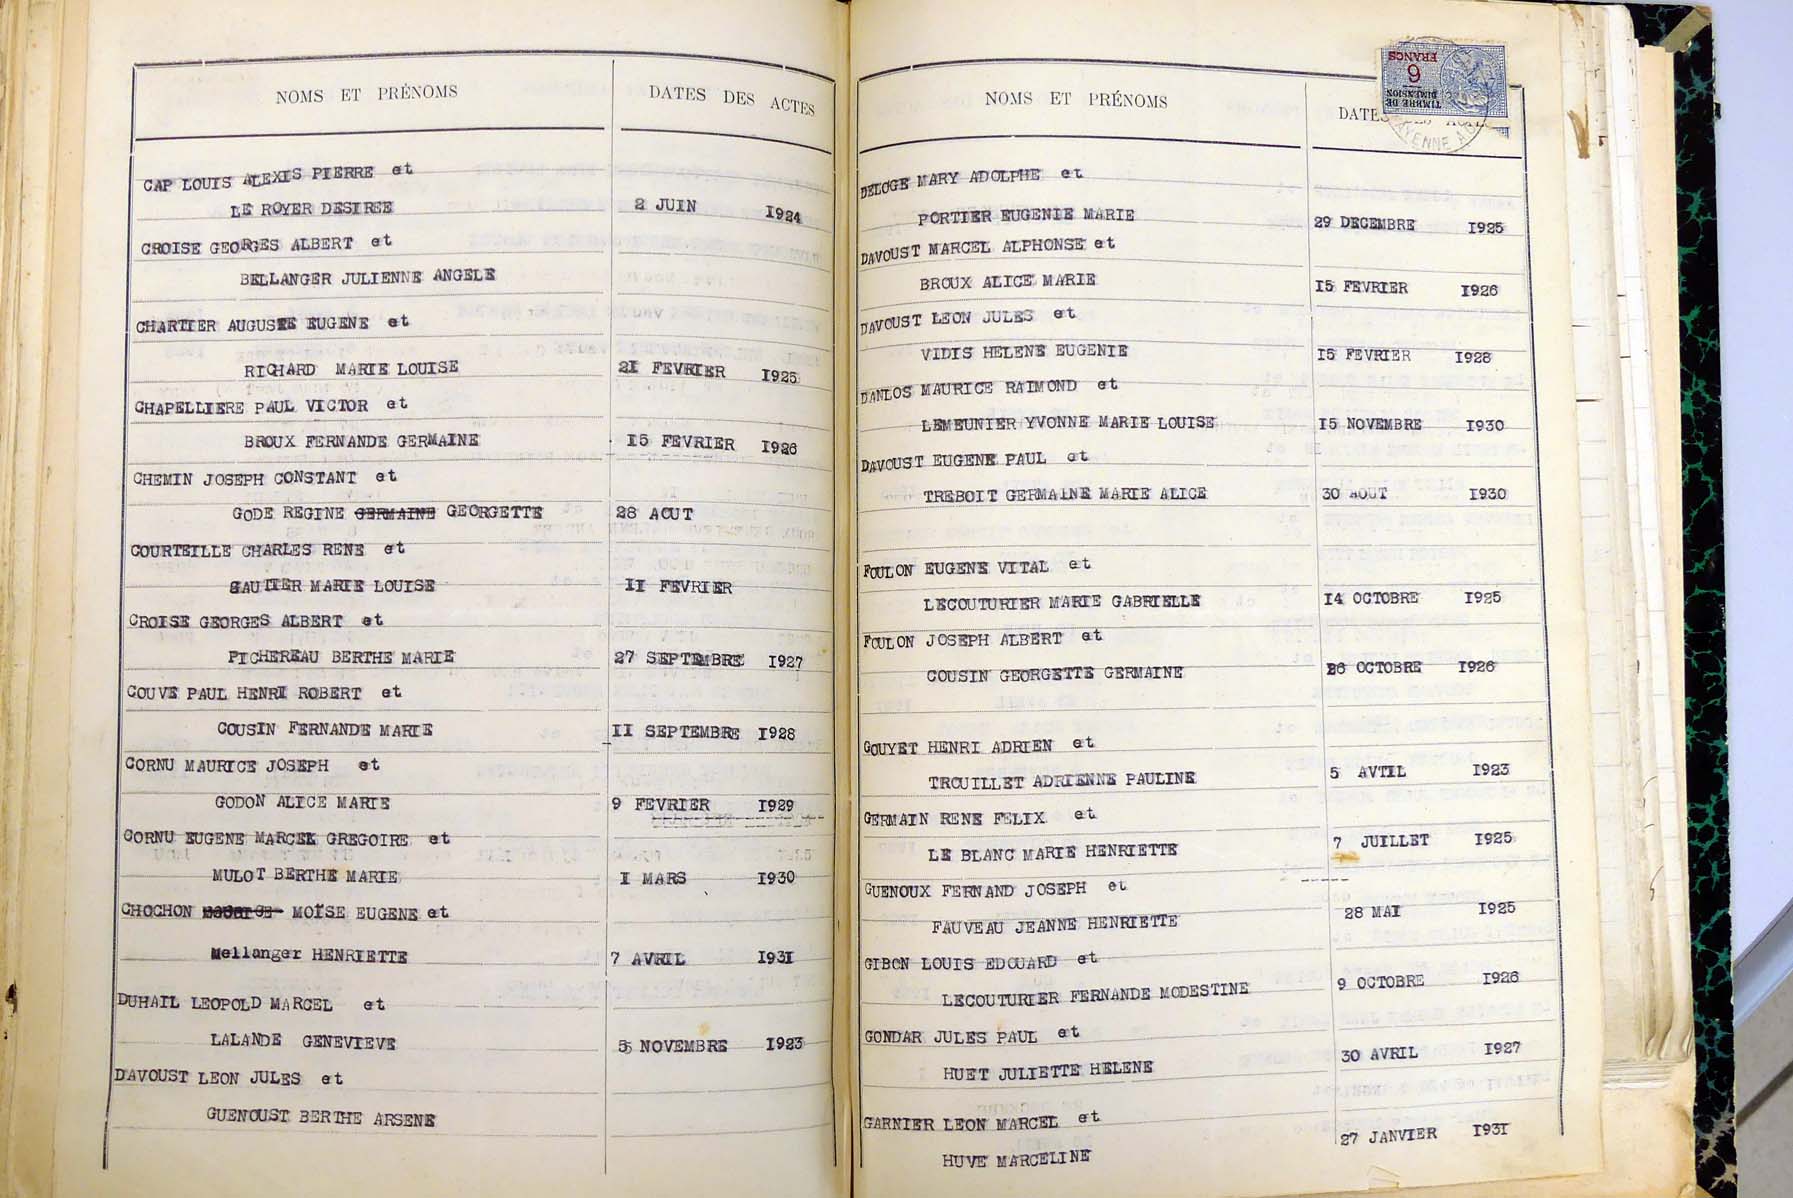 NOMS ET PRÉNOMS DATES DES ACTES
CAP LOUIS ALEXIS PIERRE et
LE ROYER DESIREE 2 JUIN 1924
CROISE GEORGES ALBERT et
BELLANGER JULIENNE ANGELE
CHARTIER AUGUSTE EUGENE et
RICHARD MARIE LOUISE 21 FEVRIER 1925
CHAPELLIERE PAUL VICTOR et
BROUX FERNANDE GERMAINE 15 FEVRIER 1926
CHEMIN JOSEPH CONSTANT et
GODE REGINE GERMAINE GEORGETTE 28 AOUT
COURTEILLE CHARLES RENE et
GAUTIER MARIE LOUISE 11 FEVRIER
CROISE GEORGES ALBERT et
PICHEREAU BERTHE MARIE 27 SEPTEMBRE 1927
COUVE PAUL HENRI ROBERT et
COUSIN FERNANDE MARIE 11 SEPTEMBRE 1928
CORNU MAURICE JOSEPH et
GODON ALICE MARIE 9 FEVRIER 1929
CORNU EUGENE MARCEL GREGOIRE et
MULOT BERTHE MARIE 1 MARS 1930
CHOCHON MOÏSE EUGENE et
Mellanger HENRIETTE 7 AVRIL 1931
DUHAIL LEOPOLD MARCEL et
LALANDE GENEVIEVE 5 NOVEMBRE 1923
DAVOUST LEON JULES et
GUENOUST BERTHE ARSENE
NOMS ET PRÉNOMS DATES DES ACTES
TIMBRE DE
DIMENSION
6
FRANCS
MAYENNE
DELOGE MARY ADOLPHE et
PORTIER EUGENIE MARIE 29 DECEMBRE 1925
DAVOUST MARCEL ALPHONSE et
BROUX ALICE MARIE 15 FEVRIER 1926
DAVOUST LEON JULES et
VIDIS HELENE EUGENIE 15 FEVRIER 1928
DANLOS MAURICE RAIMOND et
LEMEUNIER YVONNE MARIE LOUISE 15 NOVEMBRE 1930
DAVOUST EUGENE PAUL et
TREBOIT GERMAINE MARIE ALICE 30 AOUT 1930
FOULON EUGENE VITAL et
LECOUTURIER MARIE GABRIELLE 14 OCTOBRE 1925
FOULON JOSEPH ALBERT et
COUSIN GEORGETTE GERMAINE 26 OCTOBRE 1926
GOUYET HENRI ADRIEN et
TROUILLET ADRIENNE PAULINE 5 AVTIL 1923
GERMAIN RENE FELIX et
LE BLANC MARIE HENRIETTE 7 JUILLET 1925
GUENOUX FERNAND JOSEPH et
FAUVEAU JEANNE HENRIETTE 28 MAI 1925
GIBON LOUIS EDOUARD et
LECOUTURIER FERNANDE MODESTINE 9 OCTOBRE 1926
GONDAR JULES PAUL et
HUET JULIETTE HELENE 30 AVRIL 1927
GARNIER LEON MARCEL et
HUVE MARCELINE 27 JANVIER 1931